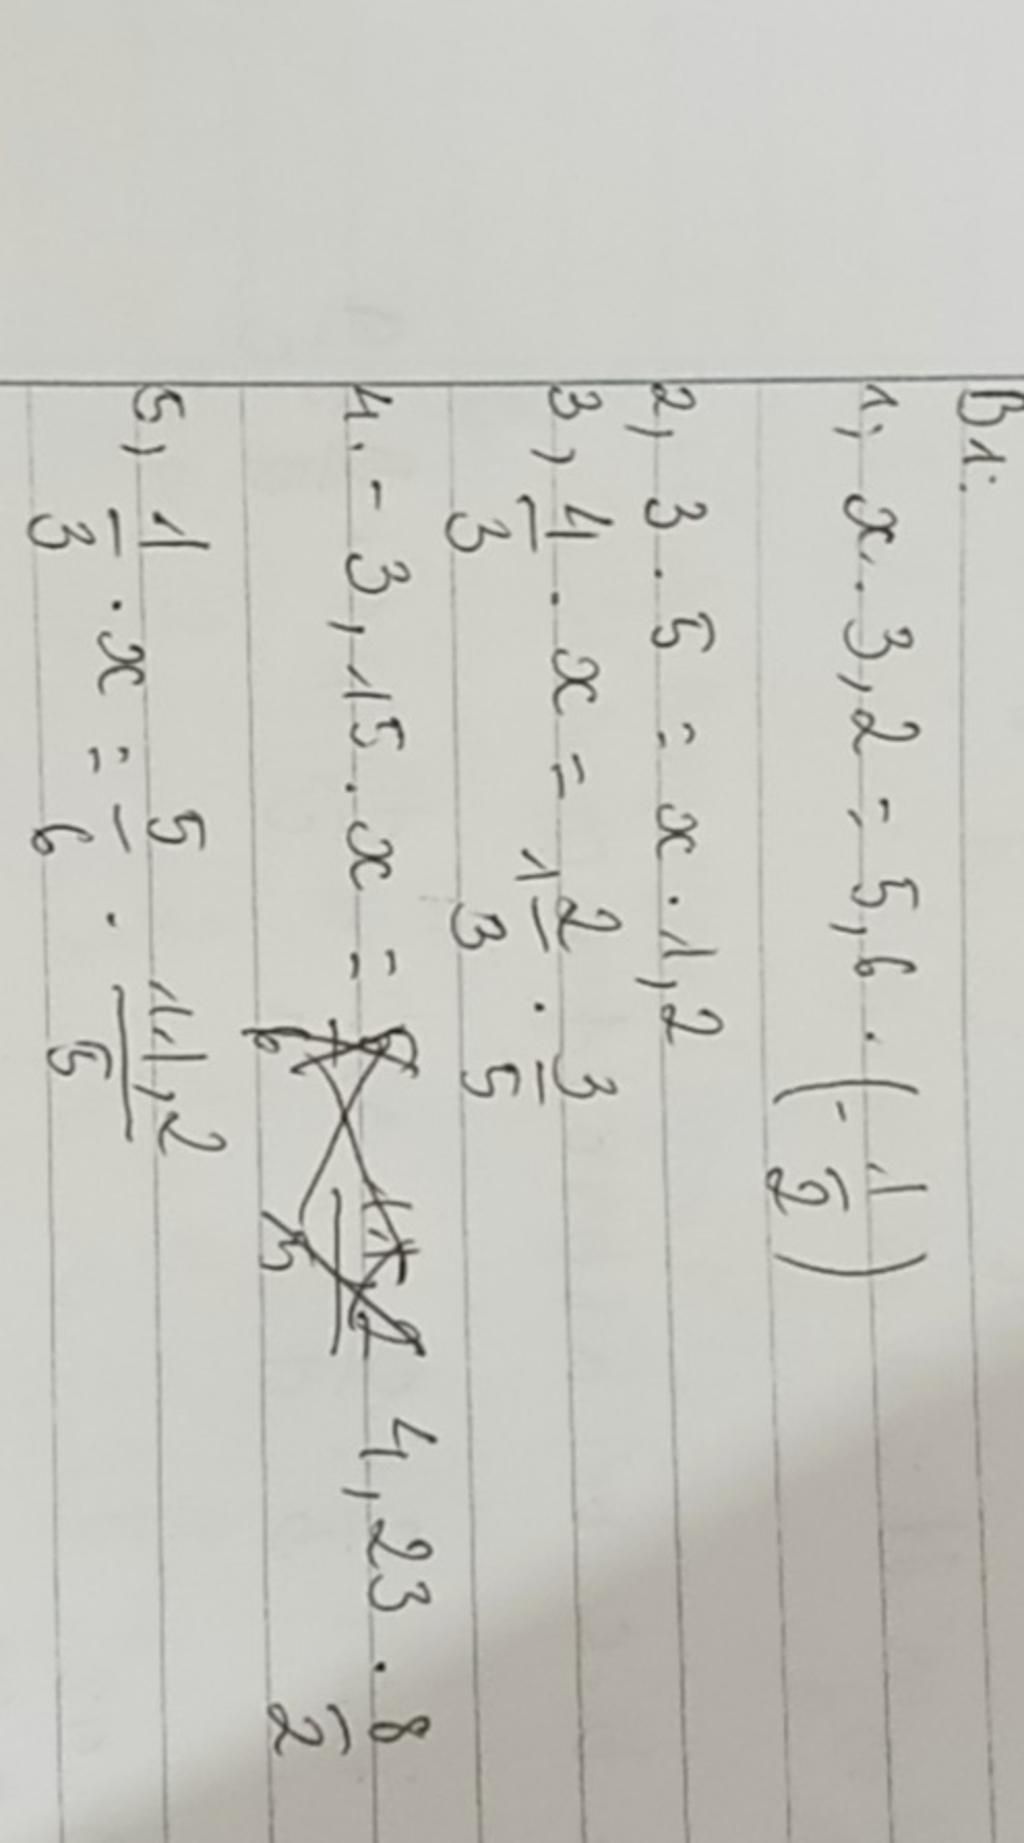 B1:
1, x . 3,2 = 5,6 . (- 1/2)
2, 3 . 5 = x . 1,2
3, 4/3 . x = 1 2/3 . 3/5
4. - 3,15 . x = 4,23 . 8/2
5, 1/3 . x = 5/6 . 11,2/5